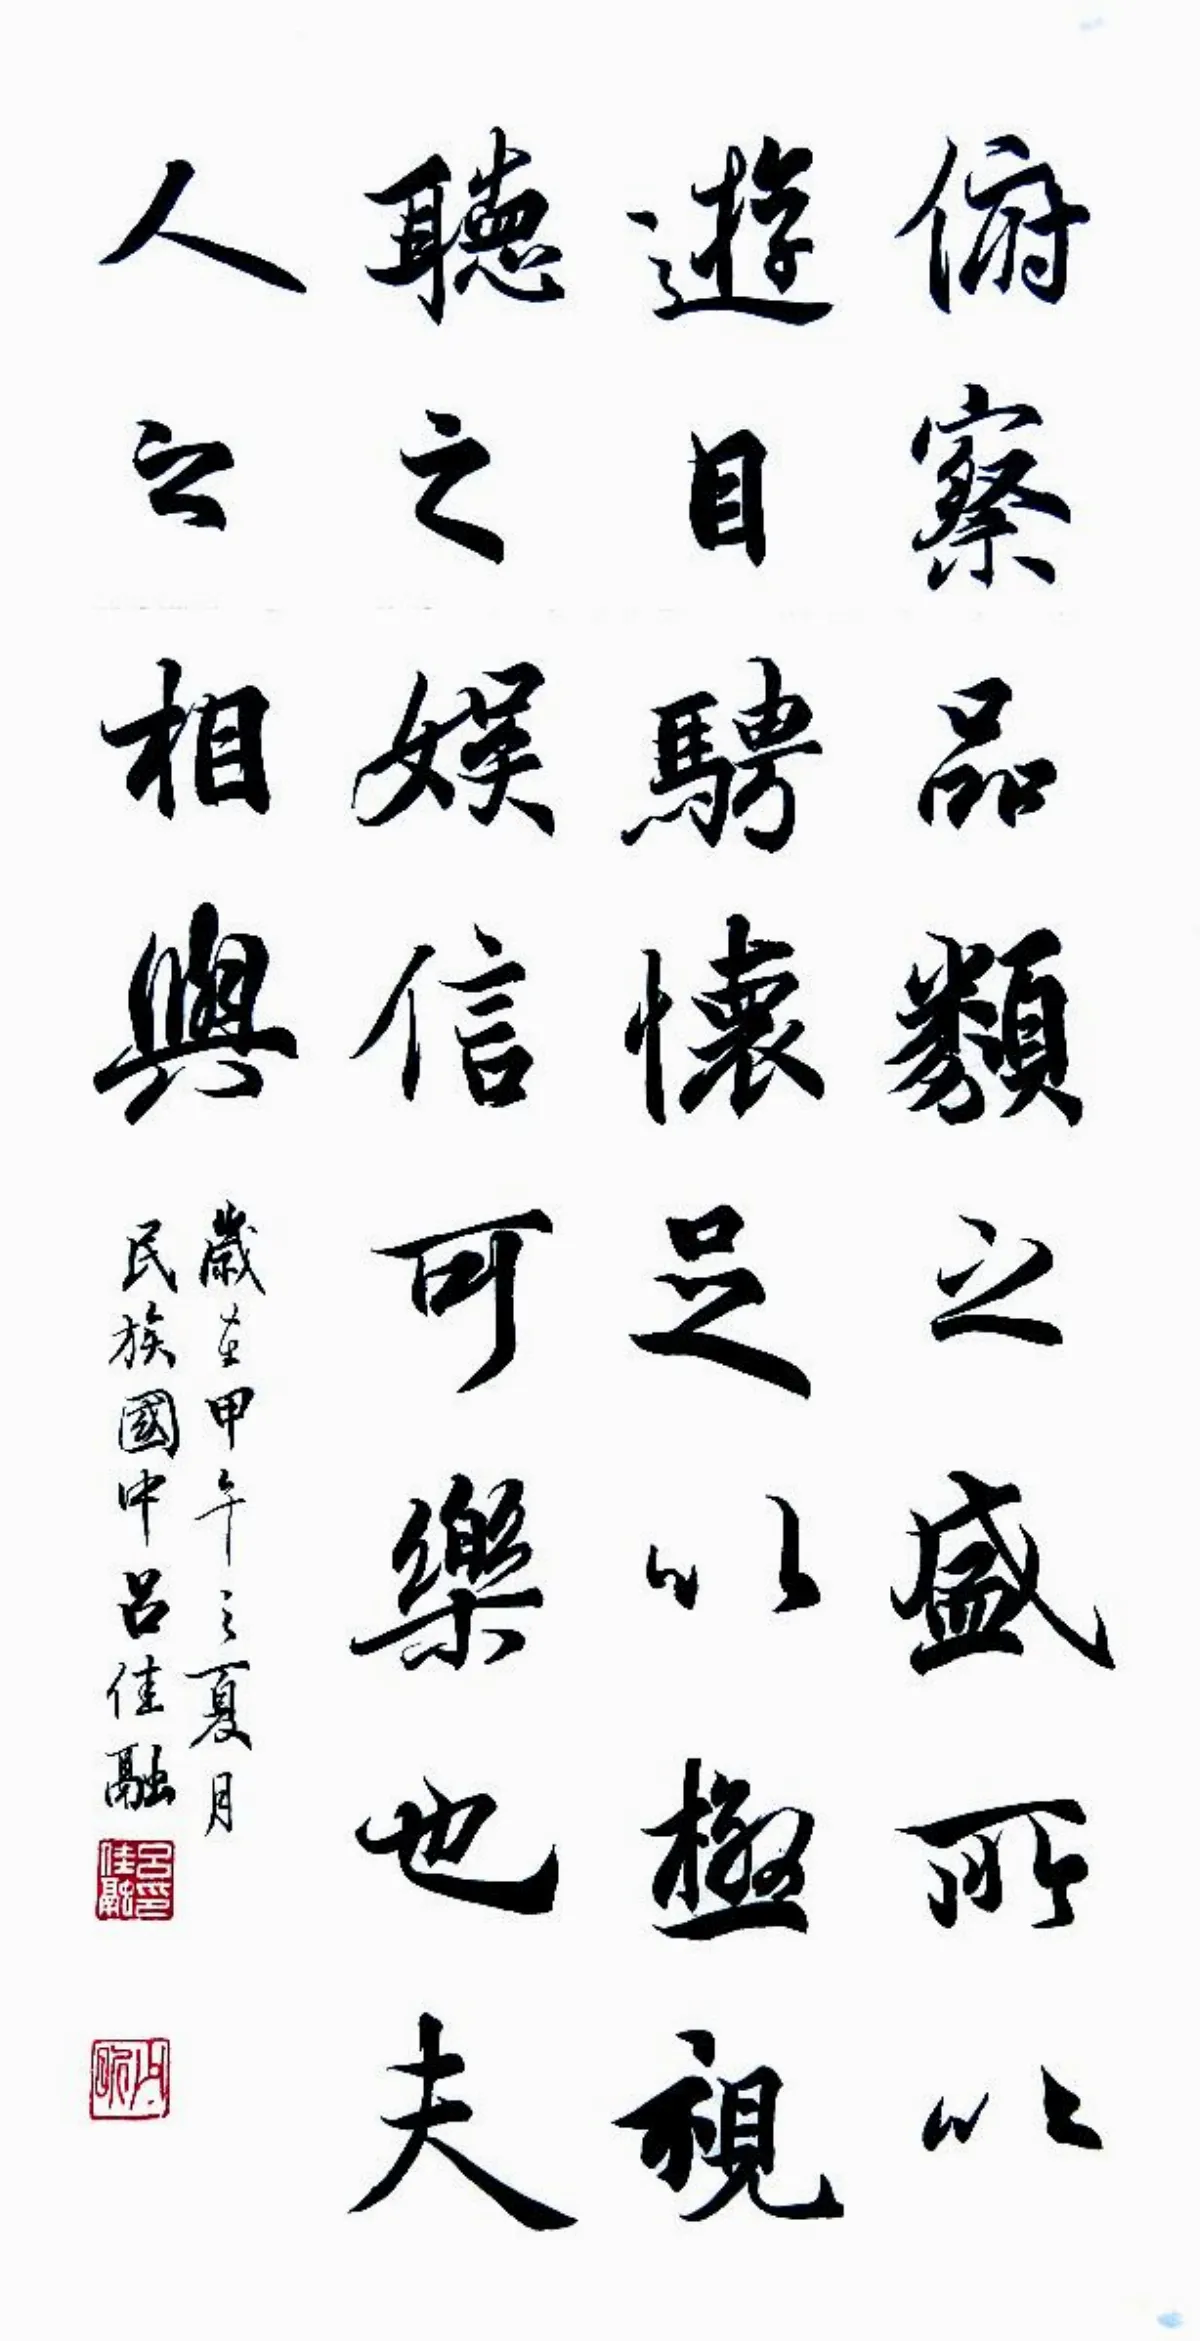 俯察品類之盛所以
遊目騁懷足以極視
聽之娛信可樂也夫
人之相與
歲在甲午之夏月
民族國中呂佳融
呂印佳融